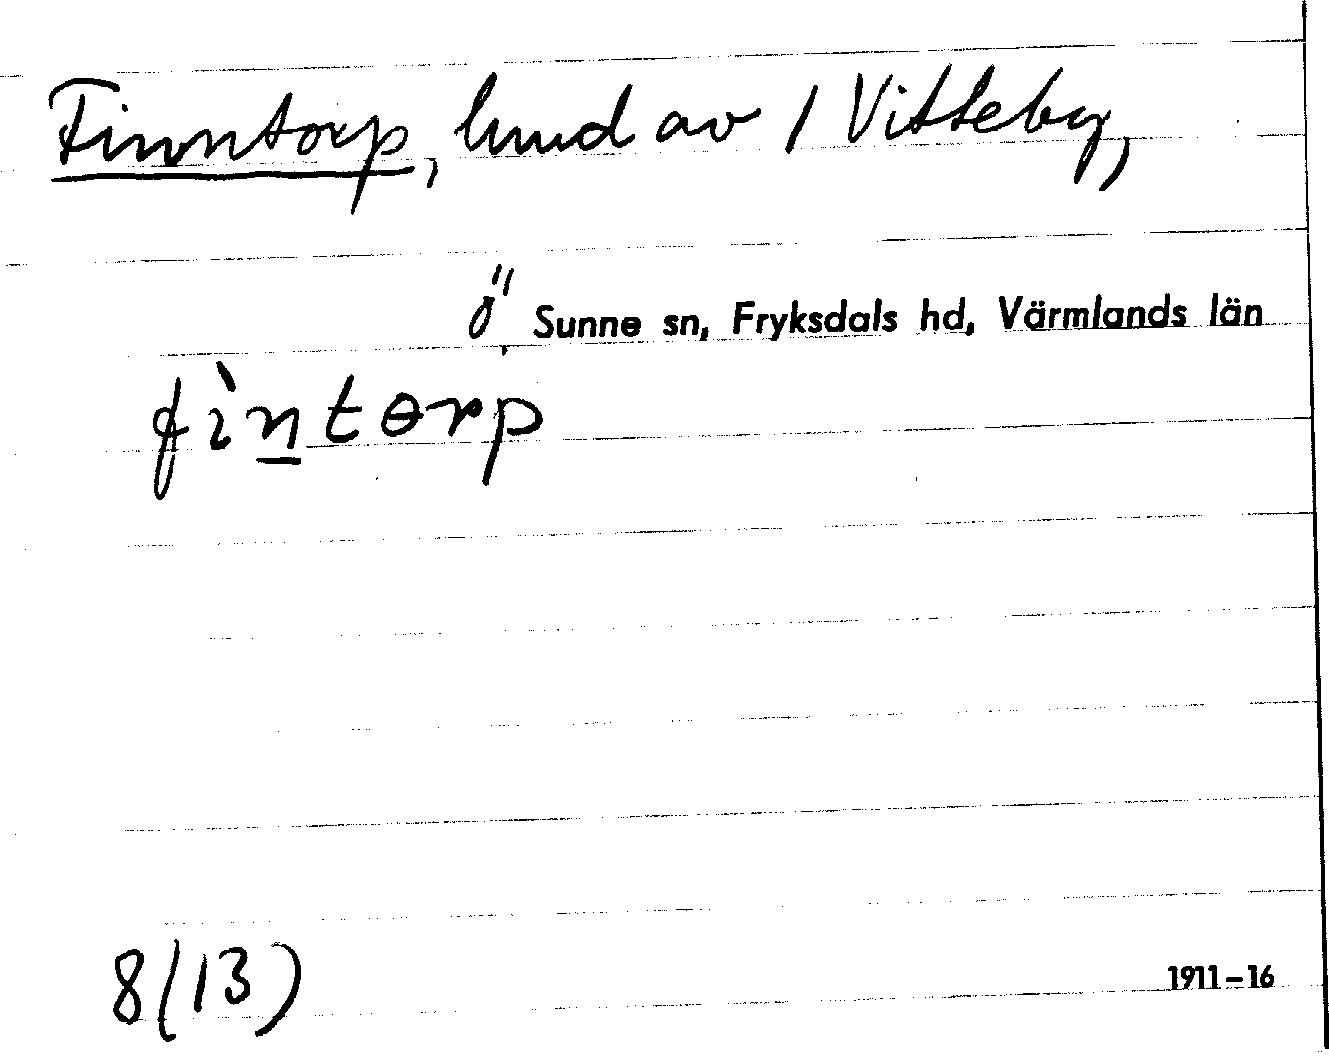 Finntorp, lmd av 1 Vitteby,
Ö, Sunne sn, Fryksdals hd, Värmlands län
fìntɵrp
8(13)
1911-16